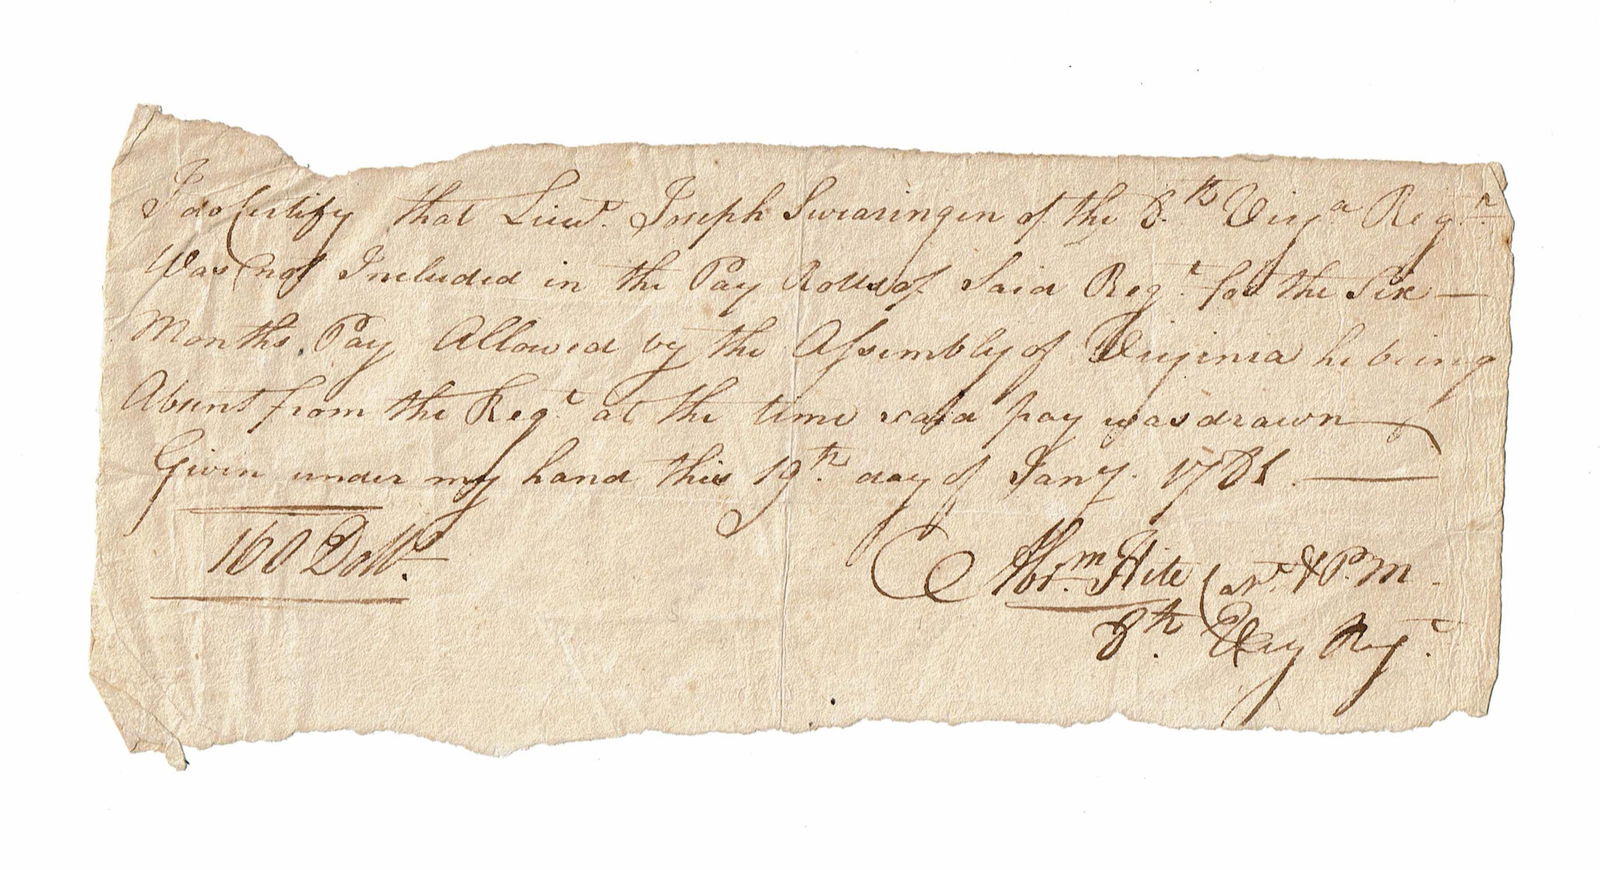 I do Certify that Lieut. Joseph Swearingen of the 8.th Virga Regt.
Was not Included in the Pay Rolls of Said Regt. for the Six —
Months Pay Allowed by the Assembly of Virginia he being
Absent from the Regt. at the time said pay was drawn
Given under my hand this 19.th day of Jany. 1781. —
160 Dolls.
Abrm. Hite & P.M.
8th. Virg Regt.